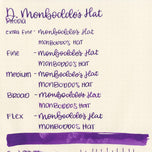 D. Monboddo's Hat
Rhodia
Extra Fine - Monboddo's Hat
Monboddo's Hat
Fine - Monboddo's Hat
Monboddo's Hat
Medium - Monboddo's Hat
Monboddo's Hat
Broad - Monboddo's Hat
Monboddo's Hat
Flex - Monboddo's Hat
Monboddo's Hat